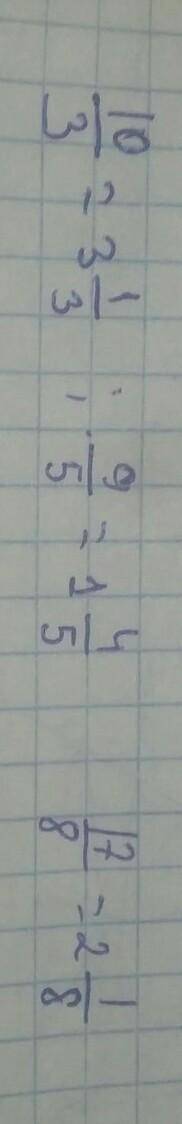 10/3 = 3 1/3 ; 9/5 = 1 4/5 17/8 = 2 1/8